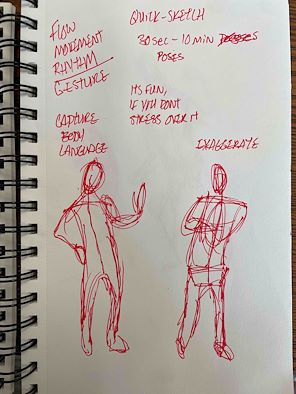 FLOW
MOVEMENT
RHYTHM
GESTURE
CAPTURE
BODY
LANGUAGE
QUICK-SKETCH
30 SEC - 10 MIN
POSES
ITS FUN,
IF YOU DONT
STRESS OVER IT
EXAGGERATE